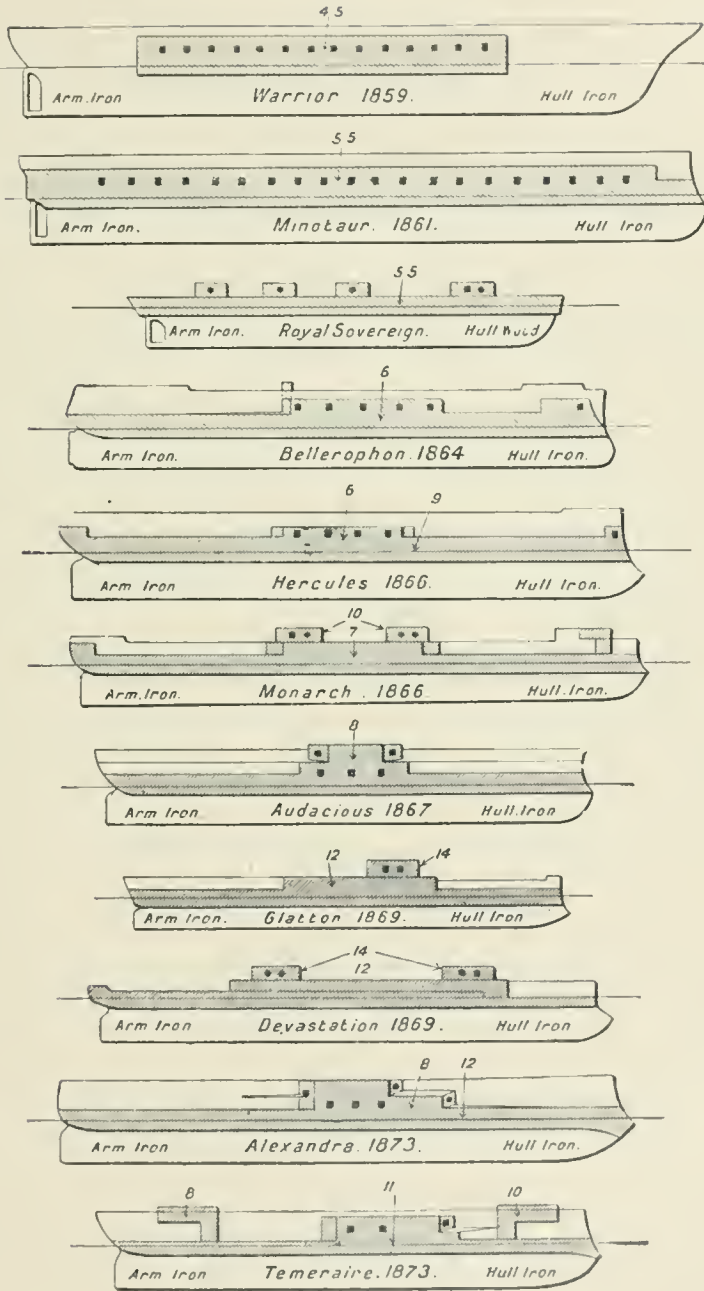 4.5
Arm. Iron Warrior 1859. Hull Iron
5.5
Arm Iron. Minotaur. 1861. Hull Iron
5.5
Arm Iron. Royal Sovereign. Hull Wood
6
Arm Iron. Bellerophon. 1864 Hull Iron.
6 9
Arm Iron Hercules 1866. Hull Iron.
10
7
Arm. Iron. Monarch. 1866 Hull. Iron.
8
Arm Iron Audacious 1867 Hull. Iron
12 14
Arm Iron. Glatton 1869. Hull Iron
14
12
Arm Iron Devastation 1869. Hull Iron
8 12
Arm Iron Alexandra. 1873. Hull Iron.
8 11 10
Arm Iron Temeraire. 1873. Hull Iron